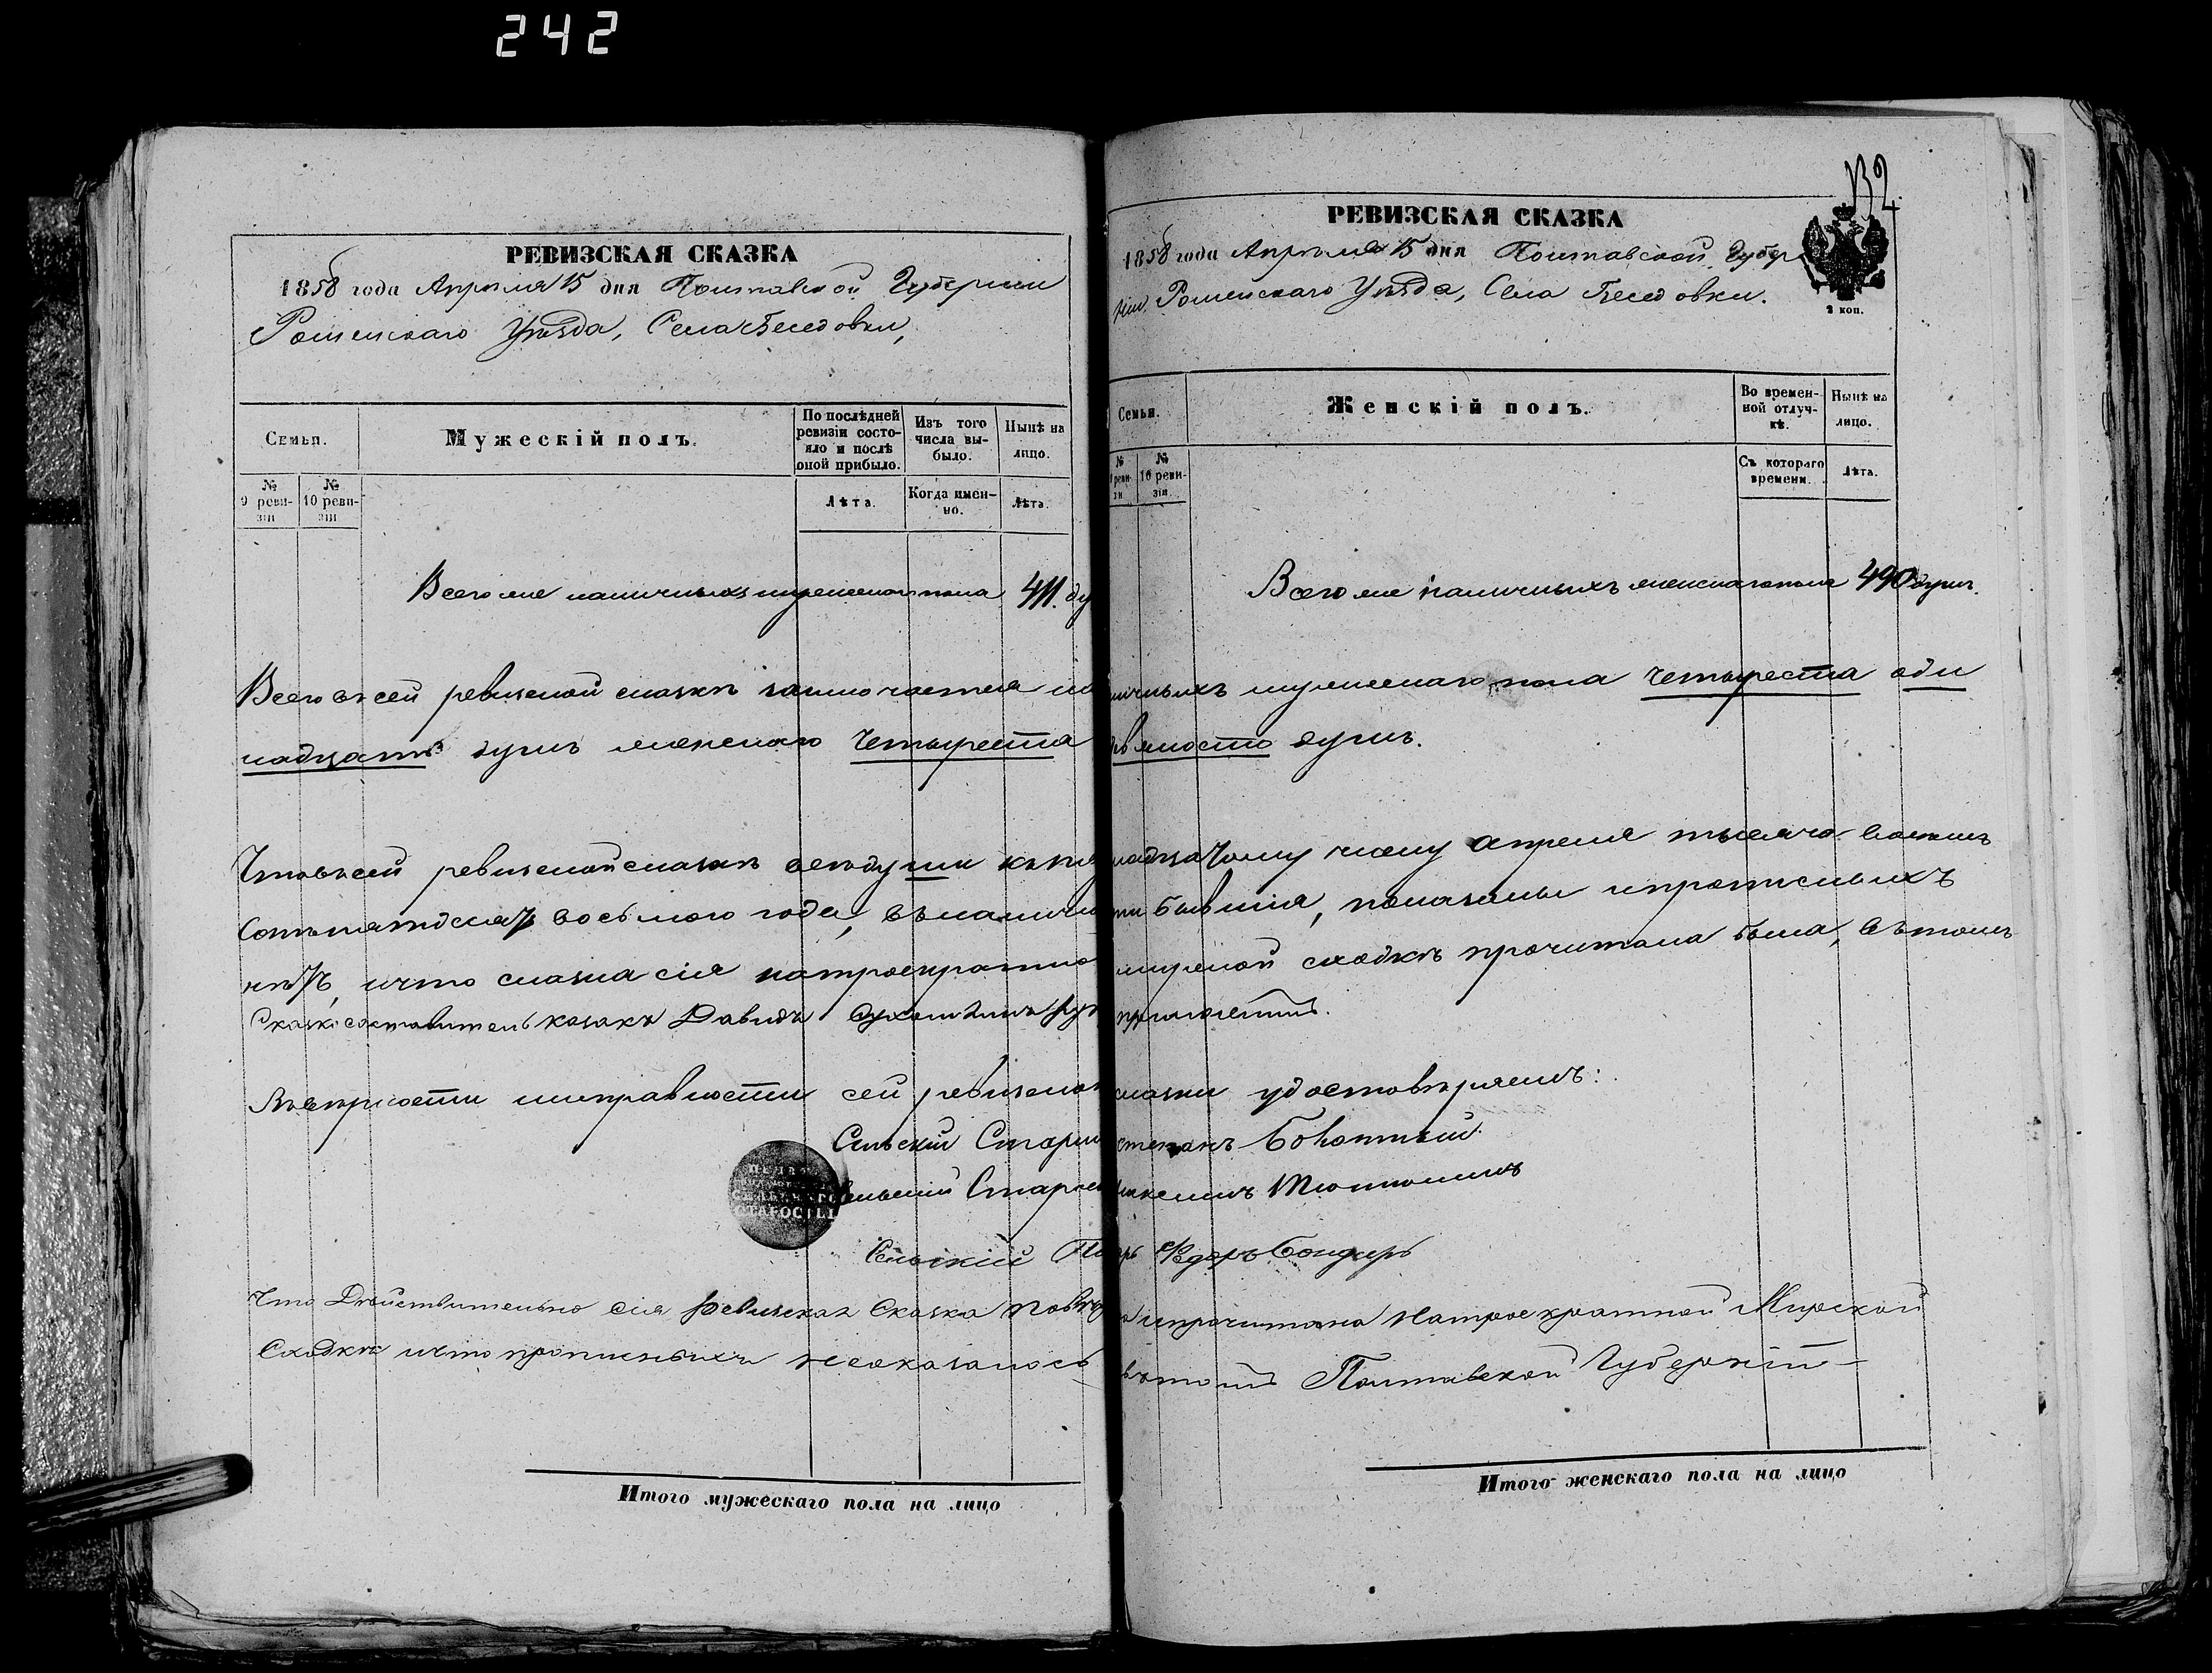 242
132
РЕВИЗСКАЯ СКАЗКА
1858 года Апрѣля 15 дня Полтавской Губерніи
Роменскаго Уѣзда, Села Беседовки,
Семьи.
Мужескій полъ.
По послѣдней ревизіи состояло и послѣ оной прибыло.
Изъ того числа выбыло.
Нынѣ на лицо.
№ 9 ревизіи
№ 10 ревизіи
Лѣта.
Когда именно.
Лѣта.
Всего же наличныхъ мужескаго пола 411. ду
РЕВИЗСКАЯ СКАЗКА
1858 года Апрѣля 15 дня Полтавской Губер
ніи Роменскаго Уѣзда, Села Беседовки.
2 коп.
Семьи.
Женскій полъ.
Во временной отлучкѣ.
Нынѣ на лицо.
№ 9 ревизіи
№ 10 ревизіи.
Съ котораго времени.
Лѣта.
Всего же наличныхъ женскаго пола 490 душъ.
Всего въ сей ревизской сказкѣ заключается наличныхъ мужескаго пола Четыреста оди
надцать душъ женскаго Четыреста девяносто душъ.
Что въ сей ревизской сказкѣ всѣ души къ пятнадцатому числу апреля тысяча восемъ
сотъ пятдесятъ восьмого года, въ наличности бывшія, показаны и прописныхъ
нѣтъ, и что сказка сія на троекратной мирской сходкѣ прочитана была, въ томъ
Сказкосоставитель казакъ Давидъ приложилъ.
Въ вѣрности и исправности сей ревизской сказки удостовѣряемъ:
Сельскій Степанъ
Сельскій Староста
ПЕЧАТЬ СЕЛЬСКАГО СТАРОСТЫ
Сельскій Писарь Федоръ Бондарь
Что Дѣйствительно сія Ревизская Сказка повѣрена и прочитана на троекратной Мирской
Сходкѣ и что прописныхъ не оказалось в томъ Полтавской Губерніи
Итого мужескаго пола на лицо
Итого женскаго пола на лицо